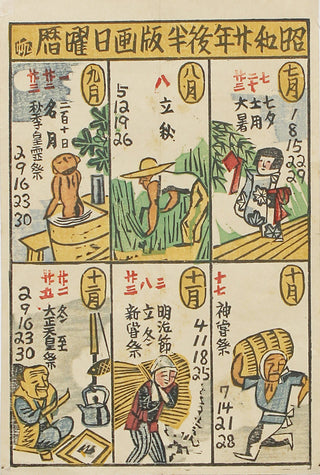 昭和廿年後半版画日曜暦
七月
七 七夕
土用
大暑
1
8
15
22
29
八月
八 立秋
5
12
19
26
九月
一 二百十日
名月
廿三 秋季皇霊祭
2
9
16
23
30
十月
十七 神甞祭
7
14
21
28
十一月
三 明治節
八 立冬
廿三 新甞祭
4
11
18
25
十二月
廿二 冬至
廿五 大正天皇祭
2
9
16
23
30